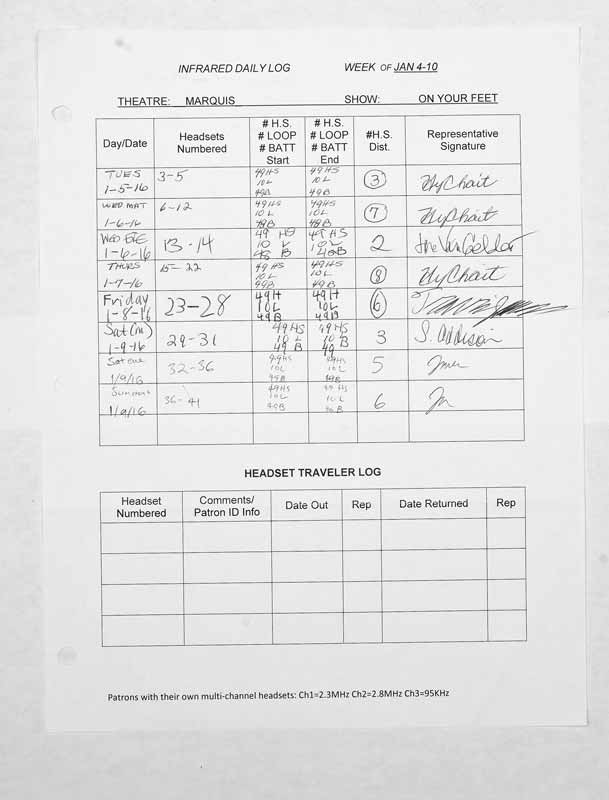 INFRARED DAILY LOG WEEK OF JAN 4-10
THEATRE: MARQUIS SHOW: ON YOUR FEET
Day/Date Headsets Numbered # H.S. # LOOP # BATT Start # H.S. # LOOP # BATT End #H.S. Dist. Representative Signature
TUES 1-5-16 3-5 49HS 10L 49B 49HS 10L 49B 3 HyChait
WED MAT 1-6-16 6-12 49HS 10L 49B 49HS 10L 49B 7 HyChait
WED EVE 1-6-16 13-14 49 HS 10 L 48 B 49HS 10L 48B 2
THURS 1-7-16 15-22 49HS 10L 49B 49HS 10L 49B 8 HyChait
Friday 1-8-16 23-28 49H 10L 49B 49H 10L 49B 6
Sat(m) 1-9-16 29-31 49HS 10L 49B 49HS 10B 49 3 S. Addison
Sat eve 1/9/16 32-36 49HS 10L 49B 49HS 10L 49B 5
1/9/16 36-41 49HS 10L 49B 49HS 10L 6
HEADSET TRAVELER LOG
Headset Numbered Comments/ Patron ID Info Date Out Rep Date Returned Rep
Patrons with their own multi-channel headsets: Ch1=2.3MHz Ch2=2.8MHz Ch3=95KHz